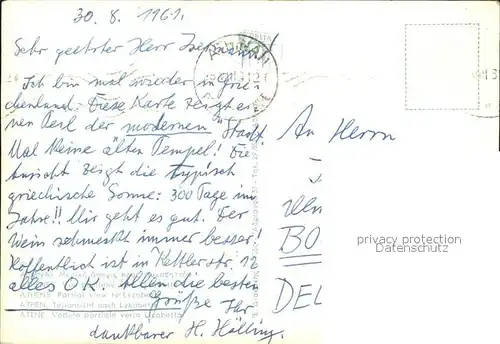 30. 8. 1961.
Sehr geehrter Herr
Ich bin mal wieder in Grie-
chenland. Diese Karte zeigt ei-
nen Teil der modernen Stadt.
Mal keine alten Tempel! Die
Ansicht zeigt die typisch
griechische Sonne: 300 Tage im
Jahre!! Mir geht es gut. Der
Wein schmeckt immer besser!
Hoffentlich ist in Kettlerstr. 12
alles O.K. Allen die besten
Grüße Ihr
dankbarer H. Hölling.
An Herrn
BO
DEL
privacy protection
Datenschutz
ATHENS. Partial view to Lycabettus
ATHEN. Teilansicht nach Lykabettos
ATENE. Veduta parziale verso Licabetto